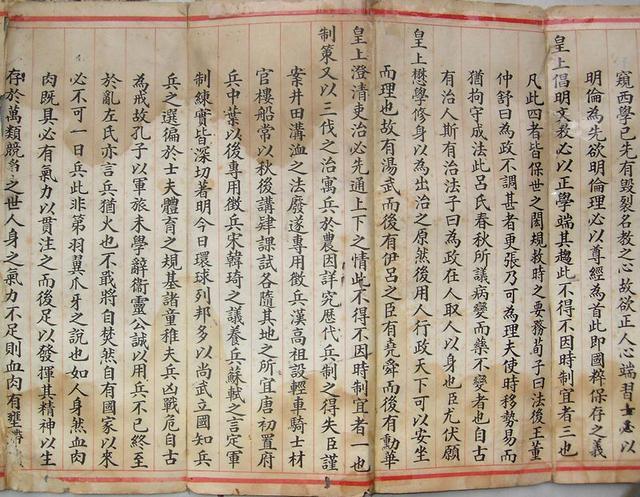 窺西學已先有毀裂名教之心故欲正人心端習士志以
明倫為先欲明倫理必以尊經為首此即國粹保存之義
皇上倡明文教必以正學端其趨此不得不因時制宜者三也
凡此四者皆保世之閎規救時之要務荀子曰法後王董
仲舒曰為政不調甚者更張乃可為理夫使時移勢易而
猶拘守成法此呂氏春秋所譏病變而藥不變者也自古
有治人斯有治法子曰為政在人取人以身也臣尤伏願
皇上懋學修身以為出治之原然後用人行政天下可以安坐
而理也故有湯武而後有伊呂之臣有堯舜而後有勳華
皇上澄清吏治必先通上下之情此不得不因時制宜者一也
制策又以三代之治寓兵於農因詳究歷代兵制之得失臣謹
案井田溝洫之法廢遂專用徵兵漢高祖設輕車騎士材
官樓船常以秋後講肄課試各隨其地之所宜唐初置府
兵中葉以後專用徵兵宋韓琦之議養兵蘇軾之言定軍
制練實皆深切著明今日環球列邦多以尚武立國知兵
兵之選徧於士夫體育之規基諸童稚夫兵凶戰危自古
為戒故孔子以軍旅未學辭衛靈公誠以用兵不已終至
於亂左氏亦言兵猶火也不戢將自焚然自有國家以來
必不可一日兵此非第羽翼爪牙之說也如人身然血肉
肉既具必有氣力以貫注之而後足以發揮其精神以生
存於萬類競爭之世人身之氣力不足則血肉有壅